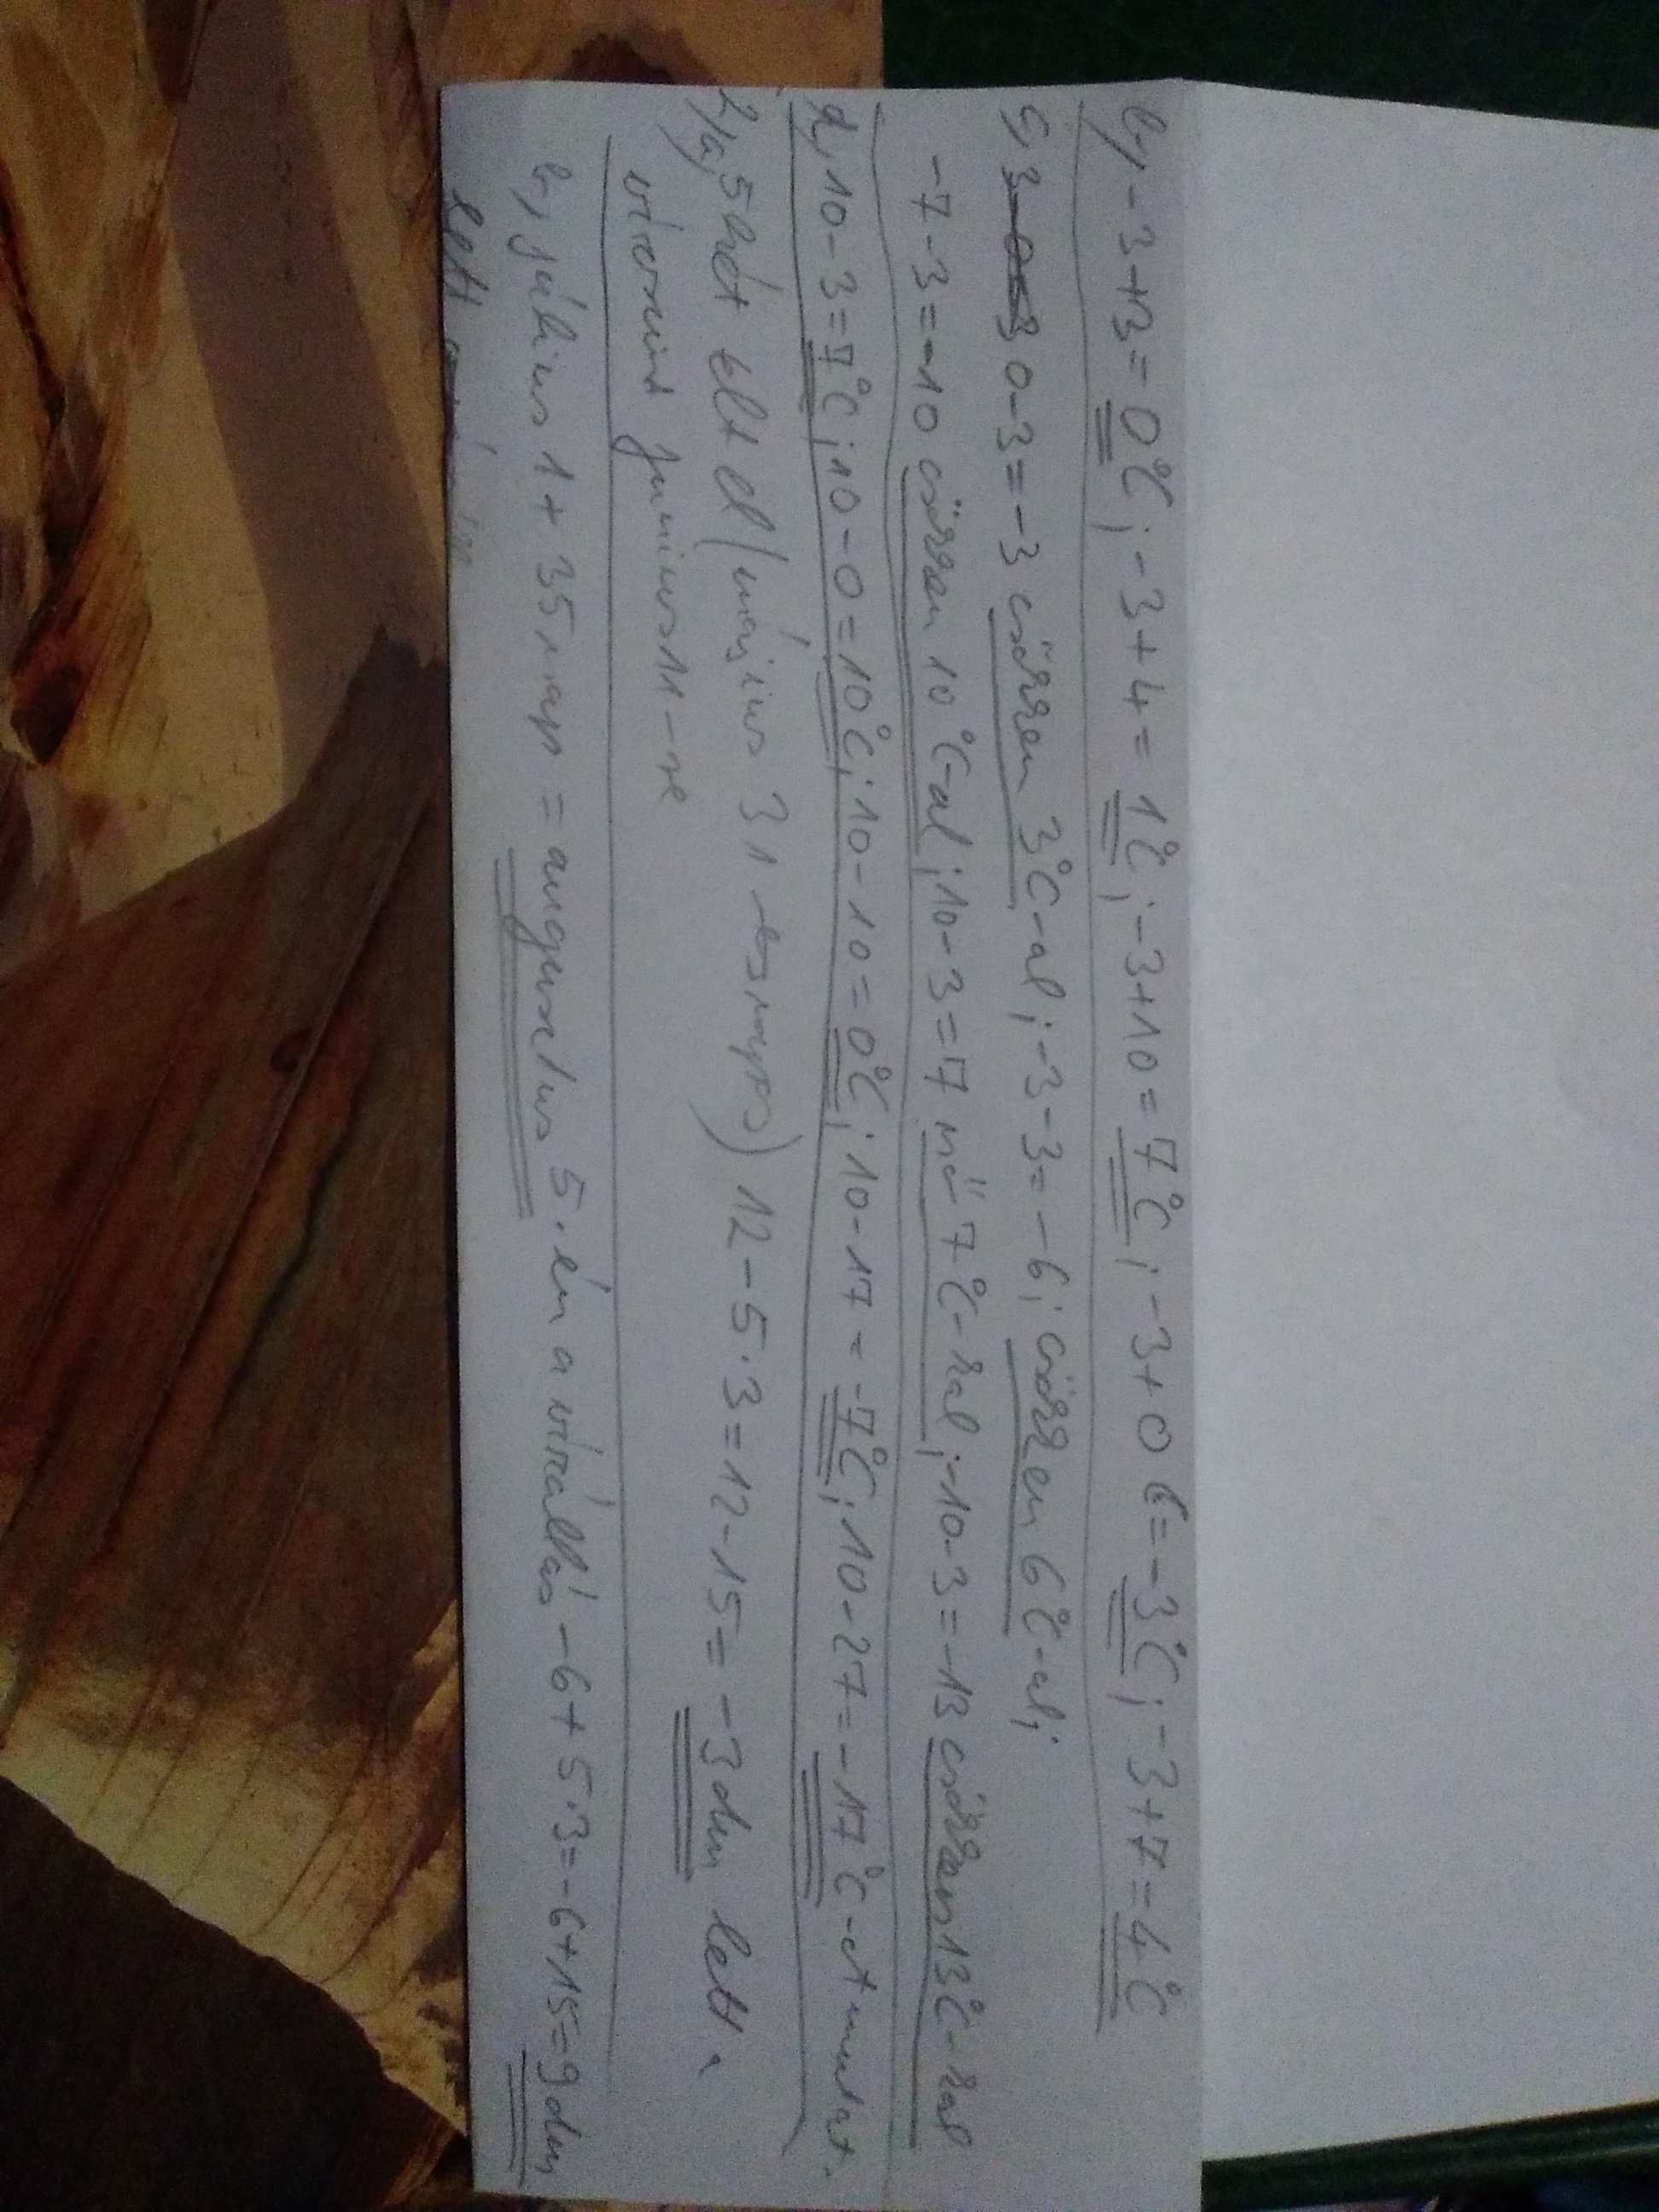 b, -3+3=0°C; -3+4=1°C; -3+10=7°C; -3+0=-3°C; -3+7=4°C
0-3=-3 csökken 3°C-al; -3-3=-6; csökken 6°C-al;
-7-3=-10 csökken 10°C-al; 10-3=7 nő 7°C-ral; -10-3=-13 csökken 13°C-ral
d, 10-3=7°C; 10-0=10°C; 10-10=0°C; 10-17=-7°C; 10-27=-17°C-ot mutat.
2/a, 5 hét telt el (május 31 napos) 12-5·3=12-15=-3dm lett a
vízszint június 11-re
b, július 1+35 nap = augusztus 5.-én a vízállás -6+5·3=-6+15=9dm
lett